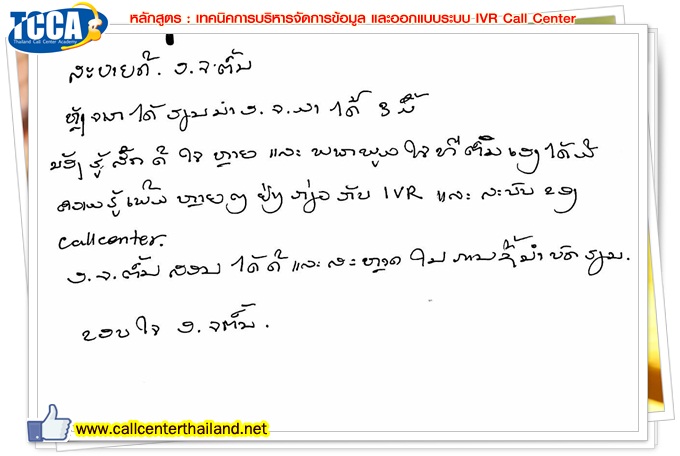 TCCA
Thailand Call Center Academy
หลักสูตร : เทคนิคการบริหารจัดการข้อมูล และออกแบบระบบ IVR Call Center
ສະບາຍດີ. ອ.ຈ.ຕົ້ນ
ຫຼັງຈາກໄດ້ຮຽນນຳ ອ.ຈ.ມາໄດ້ 3 ມື້
ຮູ້ສຶກດີໃຈຫຼາຍ ແລະ ພາກພູມໃຈທີ່ຕົນເອງໄດ້ມີ
ຄວາມຮູ້ເພີ່ມຫຼາຍໆຢ່າງກ່ຽວກັບ IVR ແລະ ລະບົບຂອງ
Callcenter.
ອ.ຈ.ຕົ້ນສອນໄດ້ດີ ແລະ ສະຫຼາດໃນການຊີ້ນຳບົດຮຽນ.
ຂອບໃຈ ອ.ຈຕົ້ນ.
www.callcenterthailand.net